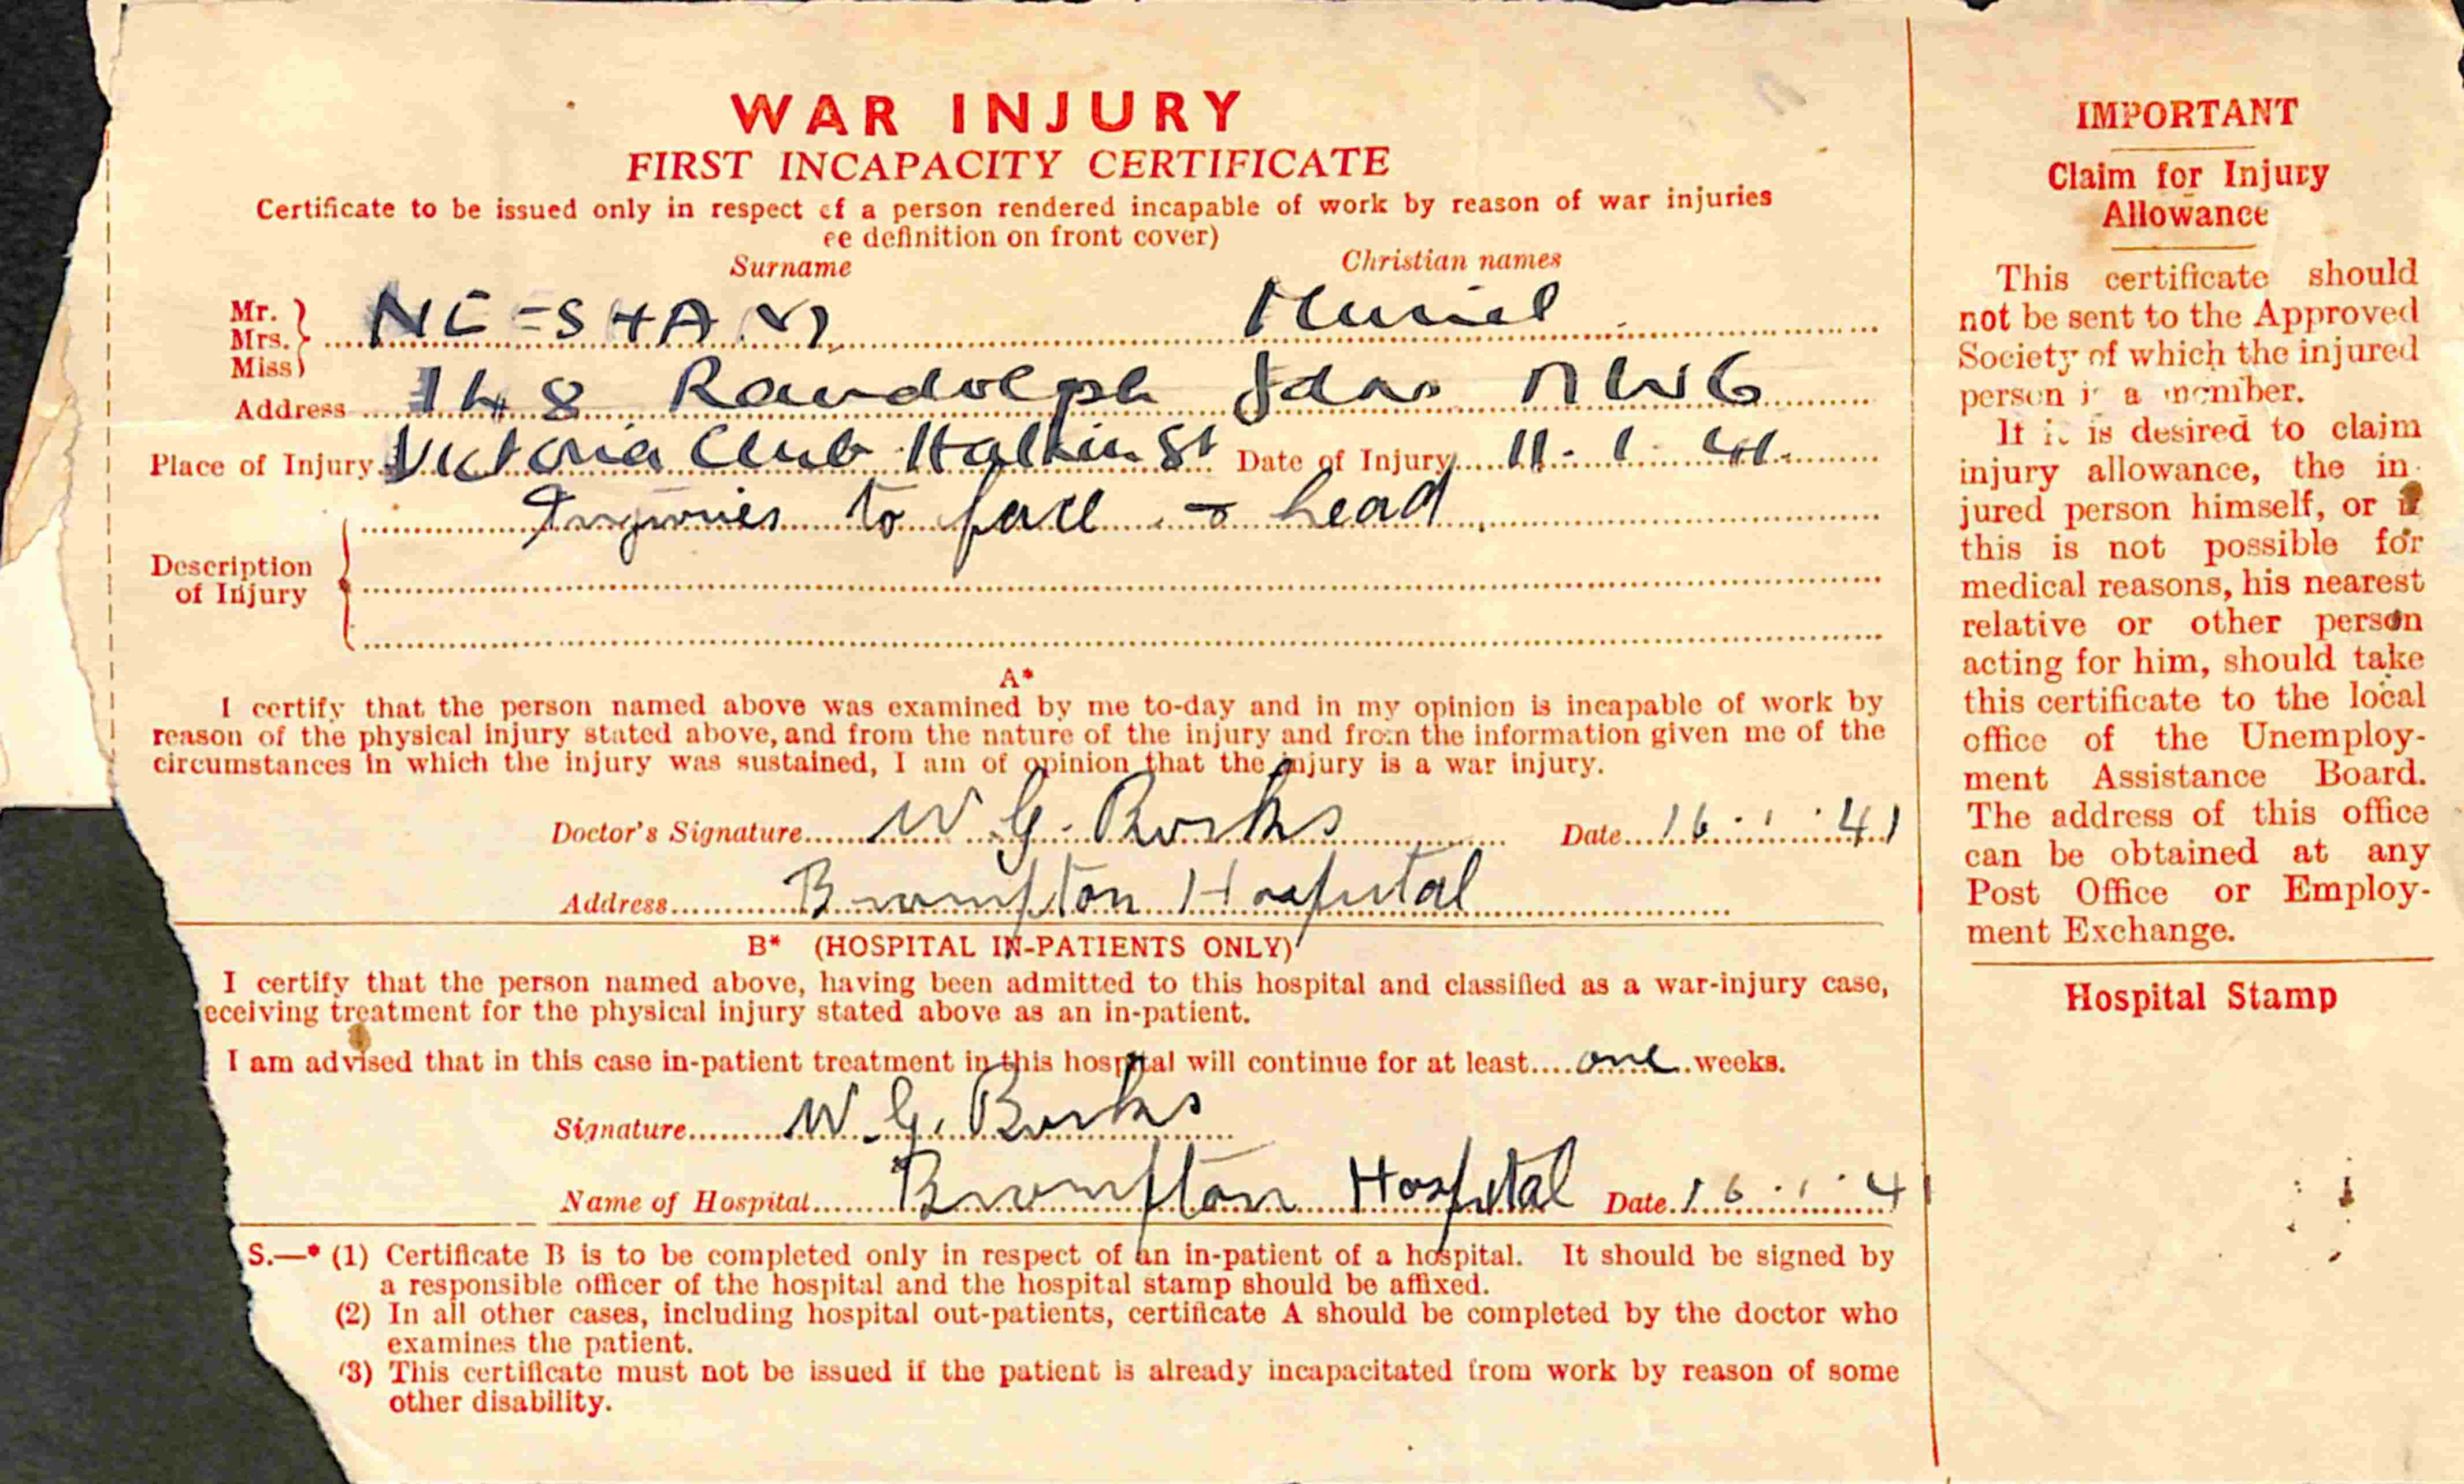 WAR INJURY
FIRST INCAPACITY CERTIFICATE
Certificate to be issued only in respect of a person rendered incapable of work by reason of war injuries
ee definition on front cover)
Surname Christian names
Mr.
Mrs.
Miss
NEESHAM Muriel
Address 148 Randolph Gdns NW6
Place of Injury Victoria Club Halkin St Date of Injury 11. 1. 41.
Description
of Injury
Injuries to face & head
A*
I certify that the person named above was examined by me to-day and in my opinion is incapable of work by
reason of the physical injury stated above, and from the nature of the injury and from the information given me of the
circumstances in which the injury was sustained, I am of opinion that the injury is a war injury.
Doctor's Signature W. G. Date 16 . 1 . 41
Address Brompton Hospital
B* (HOSPITAL IN-PATIENTS ONLY)
I certify that the person named above, having been admitted to this hospital and classified as a war-injury case,
eceiving treatment for the physical injury stated above as an in-patient.
I am advised that in this case in-patient treatment in this hospital will continue for at least one weeks.
Signature W. G.
Name of Hospital Brompton Hospital Date 16 . 1 . 41
S.—* (1) Certificate B is to be completed only in respect of an in-patient of a hospital. It should be signed by
a responsible officer of the hospital and the hospital stamp should be affixed.
(2) In all other cases, including hospital out-patients, certificate A should be completed by the doctor who
examines the patient.
(3) This certificate must not be issued if the patient is already incapacitated from work by reason of some
other disability.
IMPORTANT
Claim for Injury
Allowance
This certificate should
not be sent to the Approved
Society of which the injured
person is a member.
If it is desired to claim
injury allowance, the in-
jured person himself, or if
this is not possible for
medical reasons, his nearest
relative or other person
acting for him, should take
this certificate to the local
office of the Unemploy-
ment Assistance Board.
The address of this office
can be obtained at any
Post Office or Employ-
ment Exchange.
Hospital Stamp